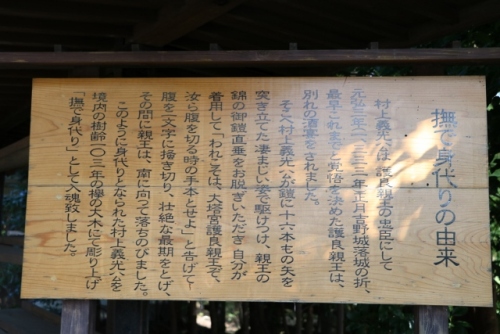 撫で身代りの由来
村上義光公は、護良親王の忠臣にして
元弘三年（一三三三年）正月吉野城落城の折、
最早これまでと覚悟を決めた護良親王は、
別れの酒宴をされました。
そこへ村上義光公が鎧に十六本もの矢を
突き立てた凄まじい姿で駆けつけ、親王の
錦の御鎧直垂をお脱ぎいただき、自分が
着用して「われこそは、大塔宮護良親王ぞ、
汝ら腹を切る時の手本とせよ」と告げて
腹を一文字に掻き切り、壮絶な最期をとげ、
その間に親王は、南に向って落ちのびました。
このように身代りとなられた村上義光公を
境内の樹齢一〇三年の欅の大木にて彫り上げ
「撫で身代り」として入魂致しました。